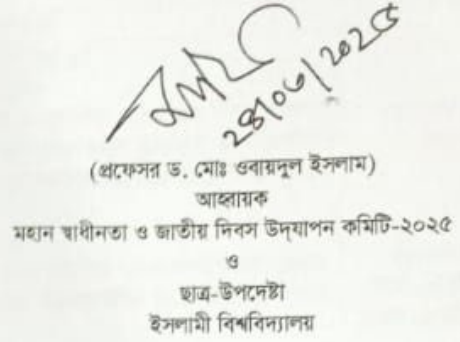 ২৪/০৩/২০২৫
(প্রফেসর ড. মোঃ ওবায়দুল ইসলাম)
আহ্বায়ক
মহান স্বাধীনতা ও জাতীয় দিবস উদ্‌যাপন কমিটি-২০২৫
ও
ছাত্র-উপদেষ্টা
ইসলামী বিশ্ববিদ্যালয়